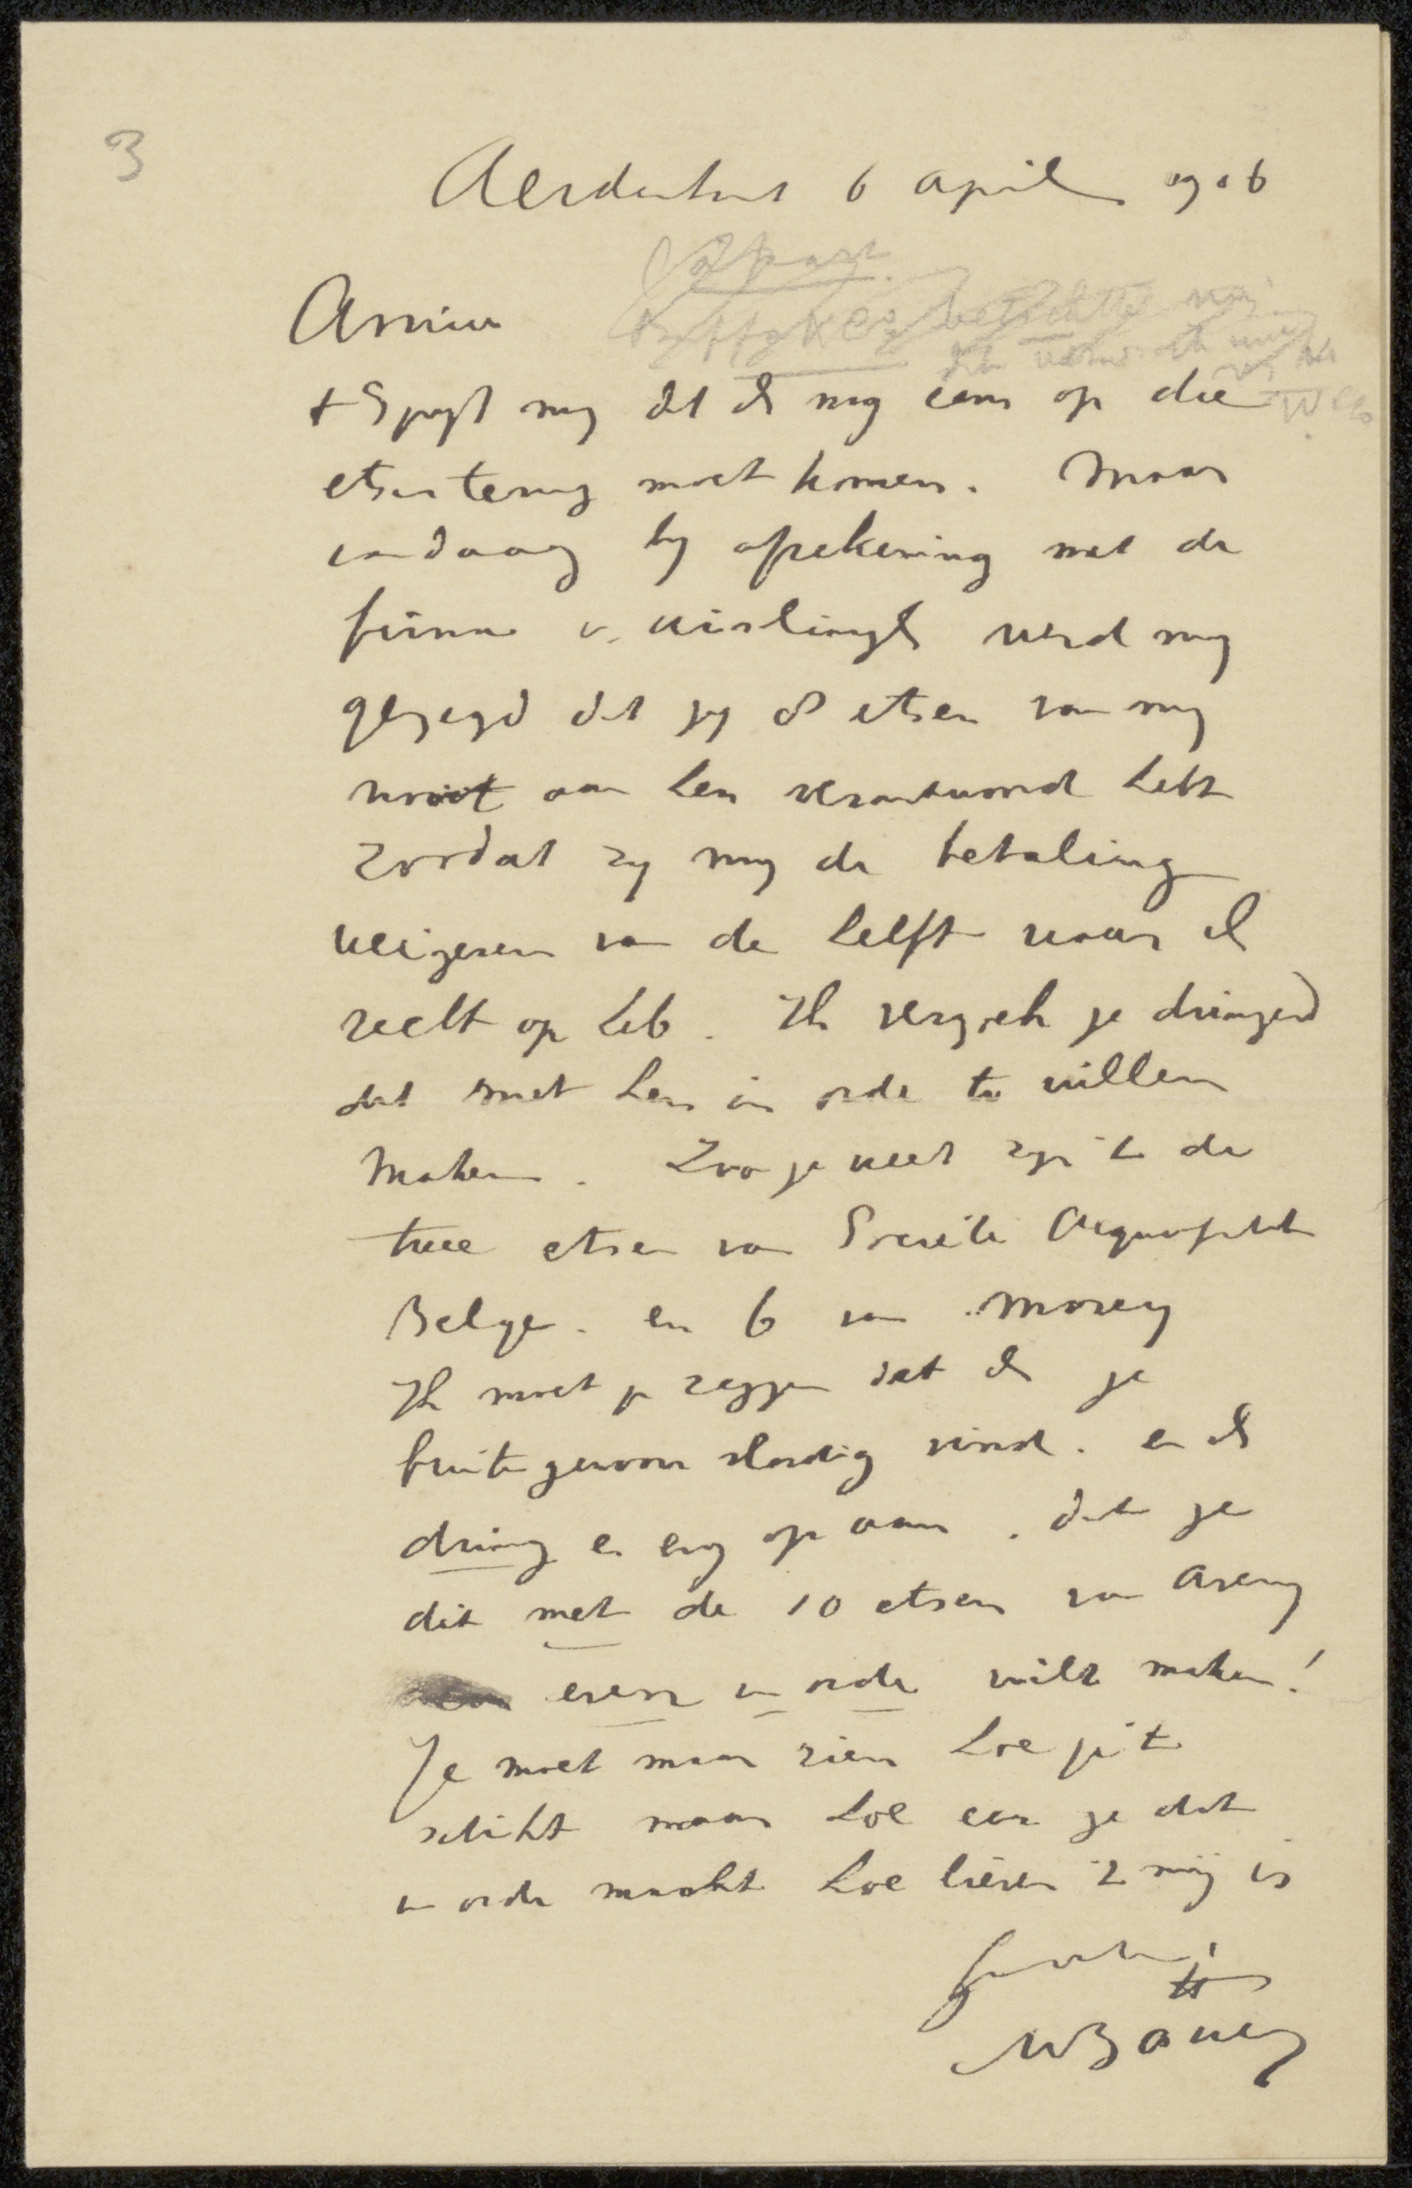 3
Aerdenhout 6 april 1906
Amice
t Spijt mij dat ik nog eens op die
etsen terug moet komen. Maar
vandaag bij afrekening met de
firma v. Wisselingh werd mij
gezegd dat jij 8 etsen van mij
nooit aan hen verantwoord hebt
zoodat zij mij de betaling
weigeren van de helft waar ik
recht op heb. Ik verzoek je dringend
dat met hen in orde te willen
maken. Zooje weet zijn 't de
twee etsen van Société
Belge. en 6 van
Ik moet je zeggen dat ik je
buitengewoon slordig vind. en ik
dring er erg op aan. dat je
dit met de 10 etsen van
even in orde wilt maken!
Je moet maar zien hoe je 't
schikt maar hoe eer je dat
in orde maakt hoe liever 't mij is
WBauer